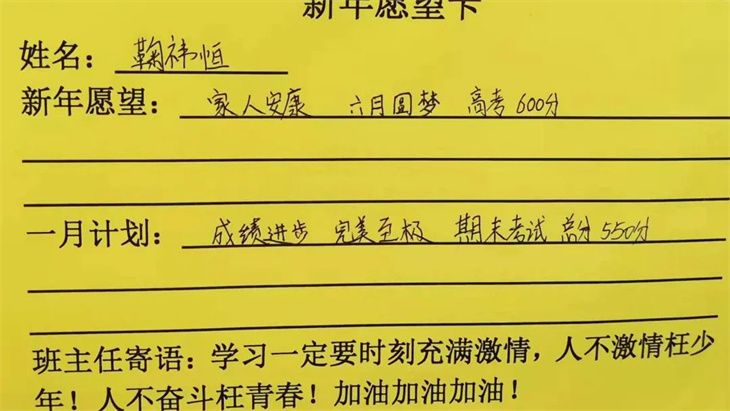 新年愿望卡
姓名：鞠祎恒
新年愿望：家人安康 六月圆梦 高考600分
一月计划：成绩进步 完美至极 期末考试 总分550分
班主任寄语：学习一定要时刻充满激情，人不激情枉少
年！人不奋斗枉青春！加油加油加油！